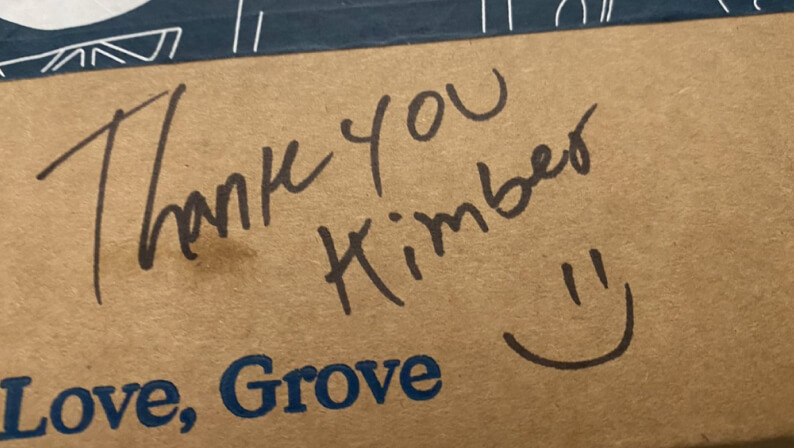 Thank YOU
Kimber
Love, Grove